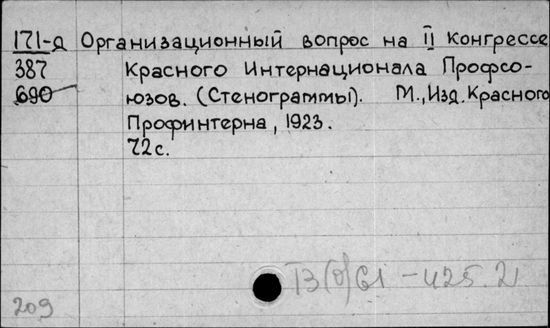 171-д Организационный вопрос на II Конгрессе
387 Красного Интернационала Профсо-
690 юзов. (Стенограммы). М., Изд. Красного
Профинтерна, 1923.
72 с.
Т3(0)61 - 425.2
209